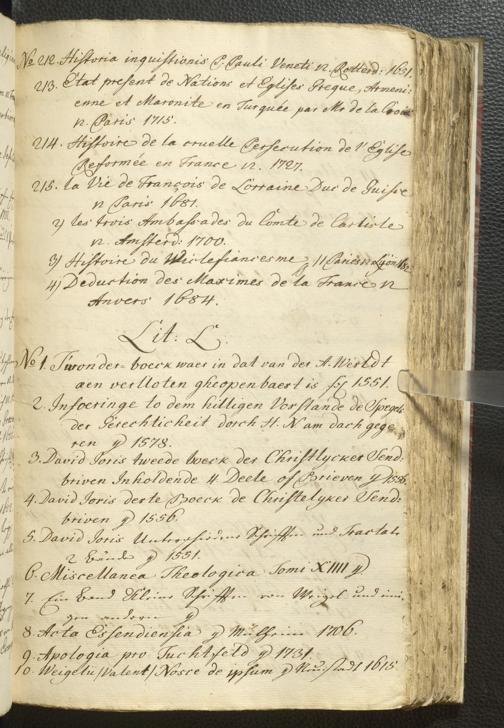 No 212. Historia inquisitionis P. Pauli Veneti 12. Rotterd: 1651.
213. Etat present de Nations et Eglises Greque, Armeni-
enne et Maronite en Turquée par Mr de la Croix
12. Paris 1715.
214. Histoire de la cruelle Persecution de l'Eglise
Reformée en France 12. 1727.
215. la Vie de François de Lorraine Duc de Guise
12 Paris 1681.
2) les trois Ambassades du Comte de Carlisle
12. Amsterd: 1700.
3) Histoire du
4) Deduction des Maximes de la France 12
Anvers 1684.
Lit: C.
No 1. Twonder-boeck waer in dat van der A. Werldt
aen verlloten gheopenbaert is fol 1551.
2. Infoeringe to dem hilligen Vorstande de Spegel
der Gerechticheit dorch H. N am dach gege
ren 1578.
3. David Joris tweede boeck der Christlycker Send-
briven Inholdende 4 Deele of Brieven
4. David Joris derte Boeck de Christelyker Send-
briven 1556.
5. David Joris Unterschiedene Schrifften und Tractate
2 Bände 1551.
6. Miscellanea Theologica Tomi XIIII
7. Ein Band Kleine Schrifften von Weigel und eini-
gen andern
8. Acta Essendiensia Mülheim 1706.
9. Apologia pro Tuchtfeld 1731.
10. Weigelii /Valent/ Nosce de ipsum Neustadt 1615